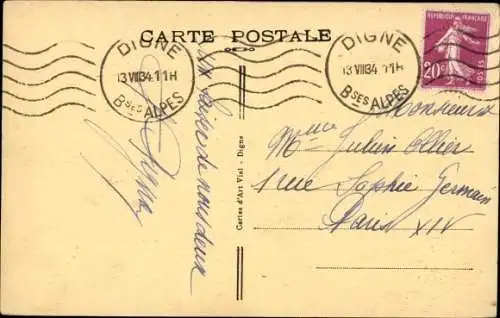 CARTE POSTALE
DIGNE
13 VIII 34 11H
Bses ALPES
DIGNE
13 VIII 34 11H
Bses ALPES
REPUBLIQUE FRANÇAISE
20c
POSTES
de nous deux
Cartes d'Art Vial - Digne
Monsieur
Mme Julien Ollier
1 rue Sophie Germain
Paris XIV